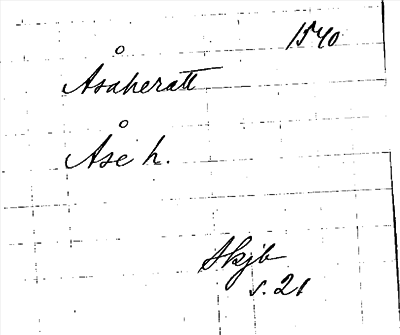 1540
Åsaheratt
Åse h.
Skjb
s. 21